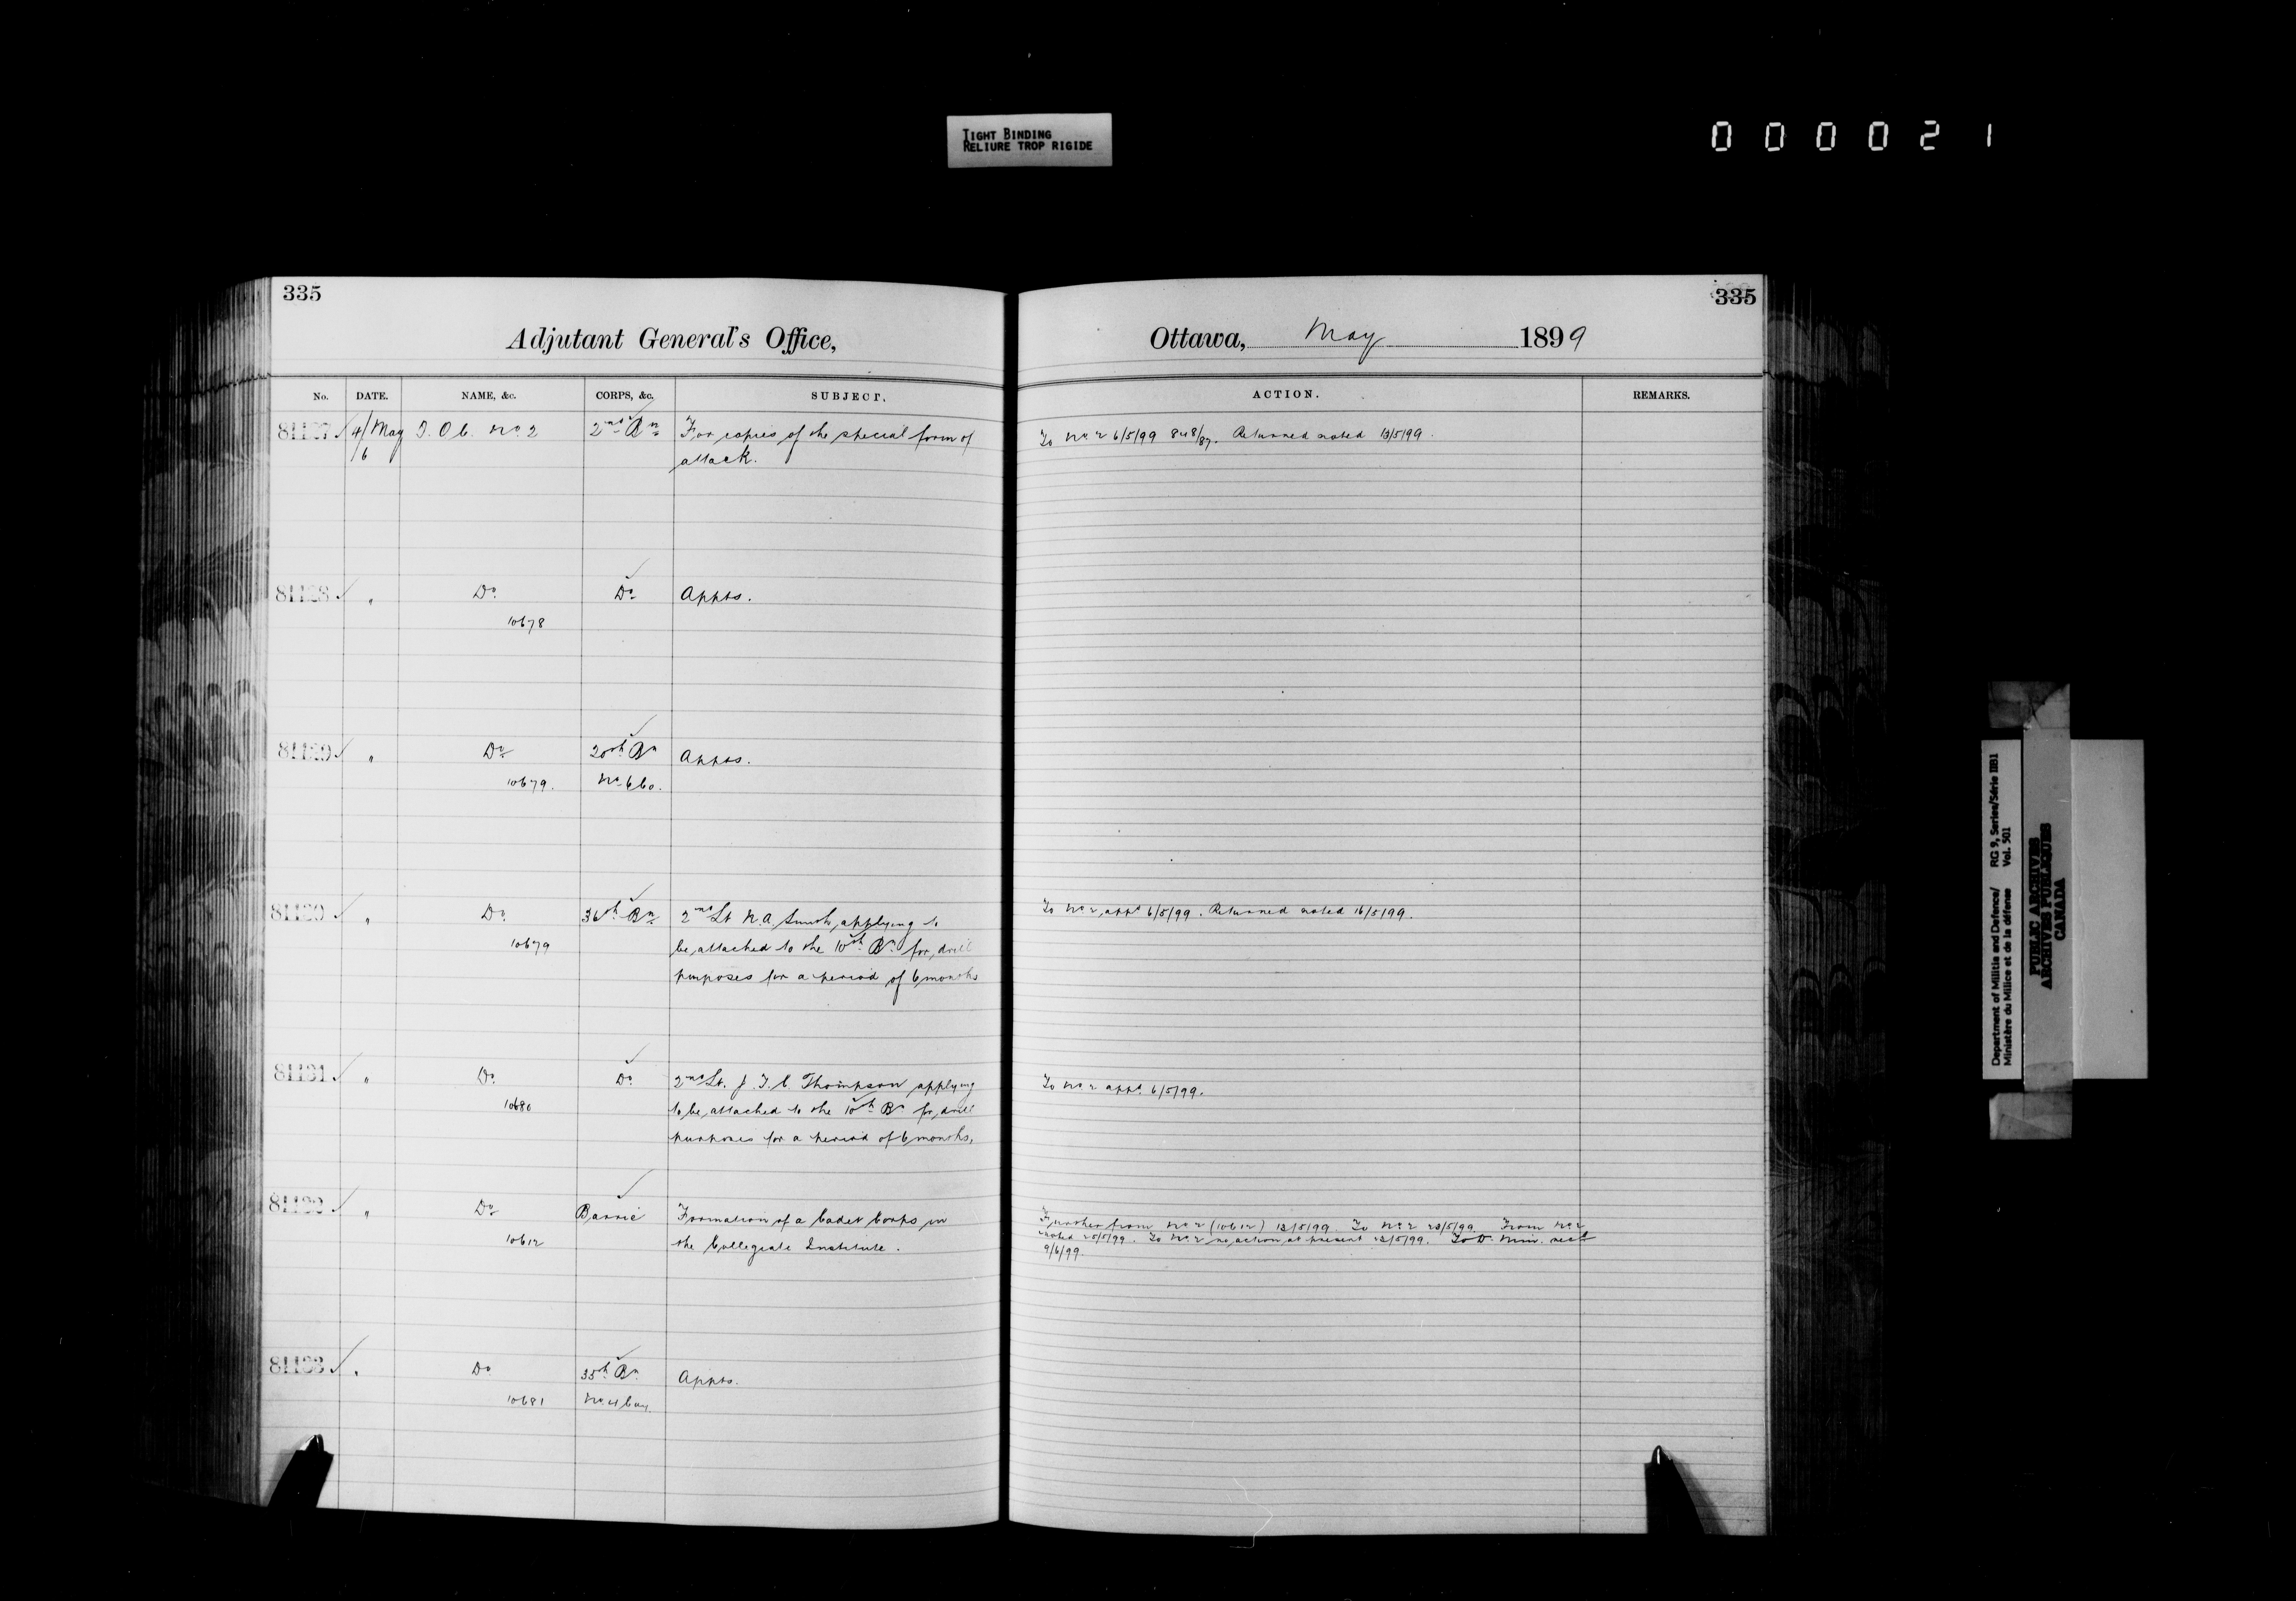 TIGHT BINDING
RELIURE TROP RIGIDE
000021
335
335
Adjutant General's Office,
Ottawa, May 1899
No. DATE. NAME, &c. CORPS, &c. SUBJECT. ACTION. REMARKS.
81127 4/May D.O.C. No. 2 2nd Bn For copies of the special form of
To No 2 6/5/99 848/87. Returned noted 13/5/99.
6 attack.
81128 " Do Do Appts.
10678
81129 " Do 20th Bn Appts.
10679. No. 6 Co.
81130 " Do 36th Bn 2nd Lt N.A. Smith, applying to
To No 2, appd 6/5/99. Returned noted 16/5/99.
10679 be attached to the 10th Bn for drill
purposes for a period of 6 months
81131 " Do Do 2nd Lt. J.T.C. Thompson applying
To No 2 appd. 6/5/99.
10680 to be attached to the 10th Bn for drill
purposes for a period of 6 months.
81132 " Do Barrie Formation of a Cadet Corps in
10612 the Collegiate Institute.
Further from No 2 (10612) 12/5/99. To No 2 23/5/99. From No 2
noted 25/5/99. To No 2 no action at present /5/99. To D. Min.
9/6/99.
81133 " Do 35th Bn Appts.
10681 No. 4 Coy.
Department of Militia and Defence/ RG 9, Series/Série IIB1
Ministère du Milice et de la défense Vol. 501
PUBLIC ARCHIVES
ARCHIVES PUBLIQUES
CANADA